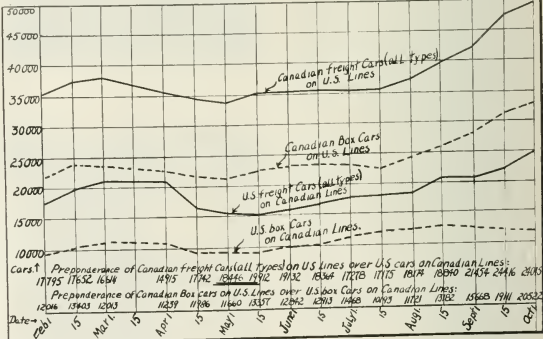 50000
45000
40000
35000
30000
25000
20000
15000
10000
Canadian freight Cars (all types)
on U.S. Lines
Canadian Box Cars
on U.S. Lines
U.S freight Cars (all types)
on Canadian Lines
U.S. box Cars
on Canadian Lines.
Cars↑ Preponderance of Canadian freight Cars (all types) on US Lines over U.S cars on Canadian Lines:
17795 17652 16614 14915 17742 18446 19912 19132 18364 17278 17175 18174 18840 21454 24416 24015
Preponderance of Canadian Box cars on U.S. Lines over U.S. box cars on Canadian Lines:
12016 13403 12013 11239 11986 11660 13357 12842 12913 11468 10493 11721 13182 15668 19111 20522
Date→ Feb.1 15 Mar.1 15 Apr.1 15 May1 15 June1 15 July1 15 Aug.1 15 Sept1 15 Oct.1